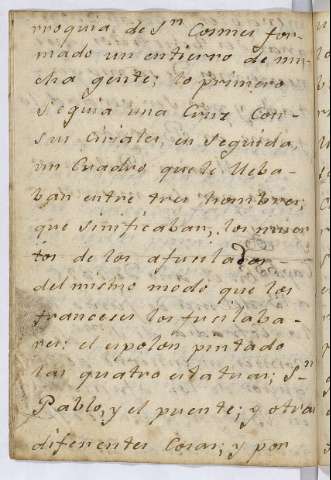 rroquia de Sn. Cosmes for-
mado un entierro de mu-
cha gente; lo primero
Seguia una Cruz Con-
sus Ciriales, en Seguida,
un Cuadro, que le lleba-
ban entre tres hombres,
que sinificaban, los muer-
tos de los afusilados
del mismo modo que los
franceses los fusilaba-
res: el espolon pintado
las quatro estatuas; Sn.
Pablo, y el puente; y otras
diferentes Cosas; y por